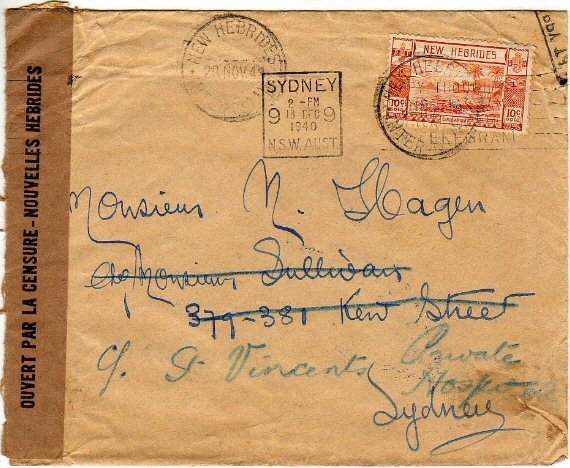 OUVERT PAR LA CENSURE-NOUVELLES HEBRIDES
NEW HEBRIDES
28 NOV 4
SYDNEY
2 - PM
9 18 DEC 9
1940
N.S.W. AUST
NEW HEBRIDES
10c 10c
TELEGRAM
Monsieur N. Hagen
c/o Monsieur Sullivan
379-381 Kent Street
c/. St Vincents Private
Hospital
Sydney